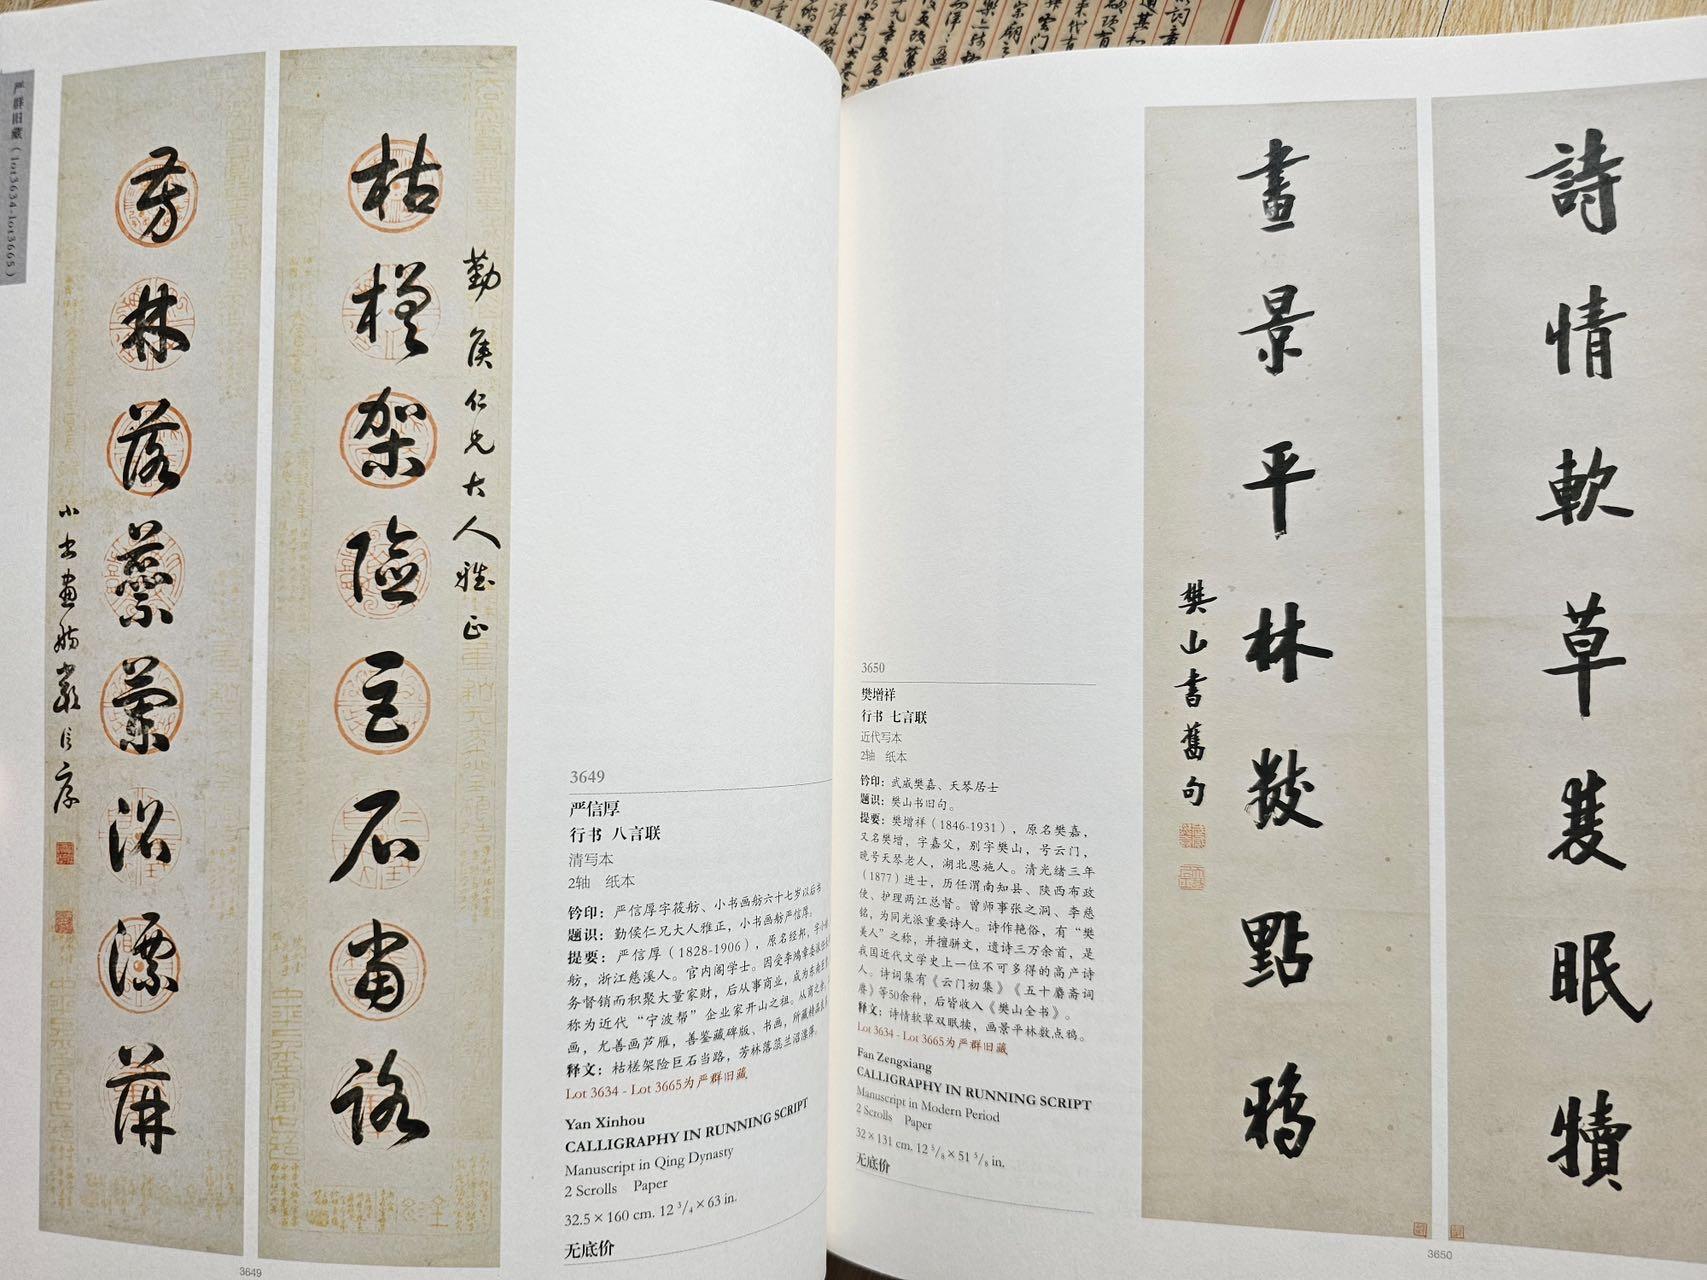 严群旧藏（Lot3634-Lot3665）
枯槎架險巨石當路
勤侯仁兄大人雅正
芳林落蘂蘭沼漂萍
小書畫舫嚴信厚
3649
3649
严信厚
行书 八言联
清写本
2轴 纸本
钤印：严信厚字筱舫、小书画舫六十七岁以后书
题识：勤侯仁兄大人雅正，小书画舫严信厚。
提要：严信厚（1828-1906），原名经邦，字小
舫，浙江慈溪人。官内阁学士。因受李鸿章
务督销而积聚大量家财，后从事商业，成为东南
称为近代“宁波帮”企业家开山之祖。从商之余，
画，尤善画芦雁，善鉴藏碑版、书画，所藏精品
释文：枯槎架险巨石当路，芳林落蕊兰沼漂萍。
Lot 3634 - Lot 3665为严群旧藏
Yan Xinhou
CALLIGRAPHY IN RUNNING SCRIPT
Manuscript in Qing Dynasty
2 Scrolls Paper
32.5×160 cm. 12 3/4×63 in.
无底价
3650
樊增祥
行书 七言联
近代写本
2轴 纸本
钤印：武威樊嘉、天琴居士
题识：樊山书旧句。
提要：樊增祥（1846-1931），原名樊嘉，
又名樊增，字嘉父，别字樊山，号云门，
晚号天琴老人，湖北恩施人。清光绪三年
（1877）进士，历任渭南知县、陕西布政
使、护理两江总督。曾师事张之洞、李慈
铭，为同光派重要诗人。诗作艳俗，有“樊
美人”之称，并擅骈文，遗诗三万余首，是
我国近代文学史上一位不可多得的高产诗
人。诗词集有《云门初集》《五十麝斋词
赓》等50余种，后皆收入《樊山全书》。
释文：诗情软草双眠犊，画景平林数点鸦。
Lot 3634 - Lot 3665为严群旧藏
Fan Zengxiang
CALLIGRAPHY IN RUNNING SCRIPT
Manuscript in Modern Period
2 Scrolls Paper
32×131 cm. 12 5/8×51 5/8 in.
无底价
詩情軟草雙眠犢
畫景平林數點鴉
樊山書舊句
3650